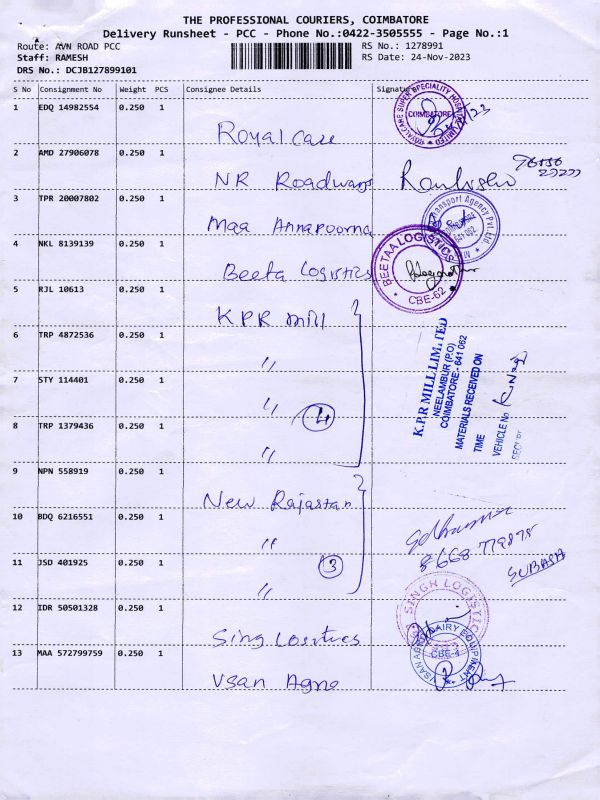 THE PROFESSIONAL COURIERS, COIMBATORE
Delivery Runsheet - PCC - Phone No.:0422-3505555 - Page No.:1
Route: AVN ROAD PCC
RS No.: 1278991
Staff: RAMESH
RS Date: 24-Nov-2023
DRS No.: DCJB127899101
S No Consignment No Weight PCS Consignee Details Signature
1 EDQ 14982554 0.250 1 Royal Care
ROYALCARE SUPER SPECIALITY HOSPITAL LIMITED
COIMBATORE
2 AMD 27906078 0.250 1 NR Roadways
3 TPR 20007802 0.250 1 Maa Annapoorna
Transport Agency Pvt. Ltd.
641 062
4 NKL 8139139 0.250 1 Beeta Logistics
BEETAA LOGISTICS
CBE-62
5 RJL 10613 0.250 1 KPR Mill
6 TRP 4872536 0.250 1 "
7 STY 114401 0.250 1 "
4
8 TRP 1379436 0.250 1 "
K.P.R MILL LIMITED
NEELAMBUR (P.O)
COIMBATORE - 641 062
MATERIALS RECEIVED ON
TIME
VEHICLE No
9 NPN 558919 0.250 1 New Rajastan
10 BDQ 6216551 0.250 1 "
11 JSD 401925 0.250 1 "
3
SUBASH
12 IDR 50501328 0.250 1 Sing Lositces
SINGH LOGISTIC
13 MAA 572799759 0.250 1 Vsan Agne
DAIRY EQUIPMENT
CBE-4